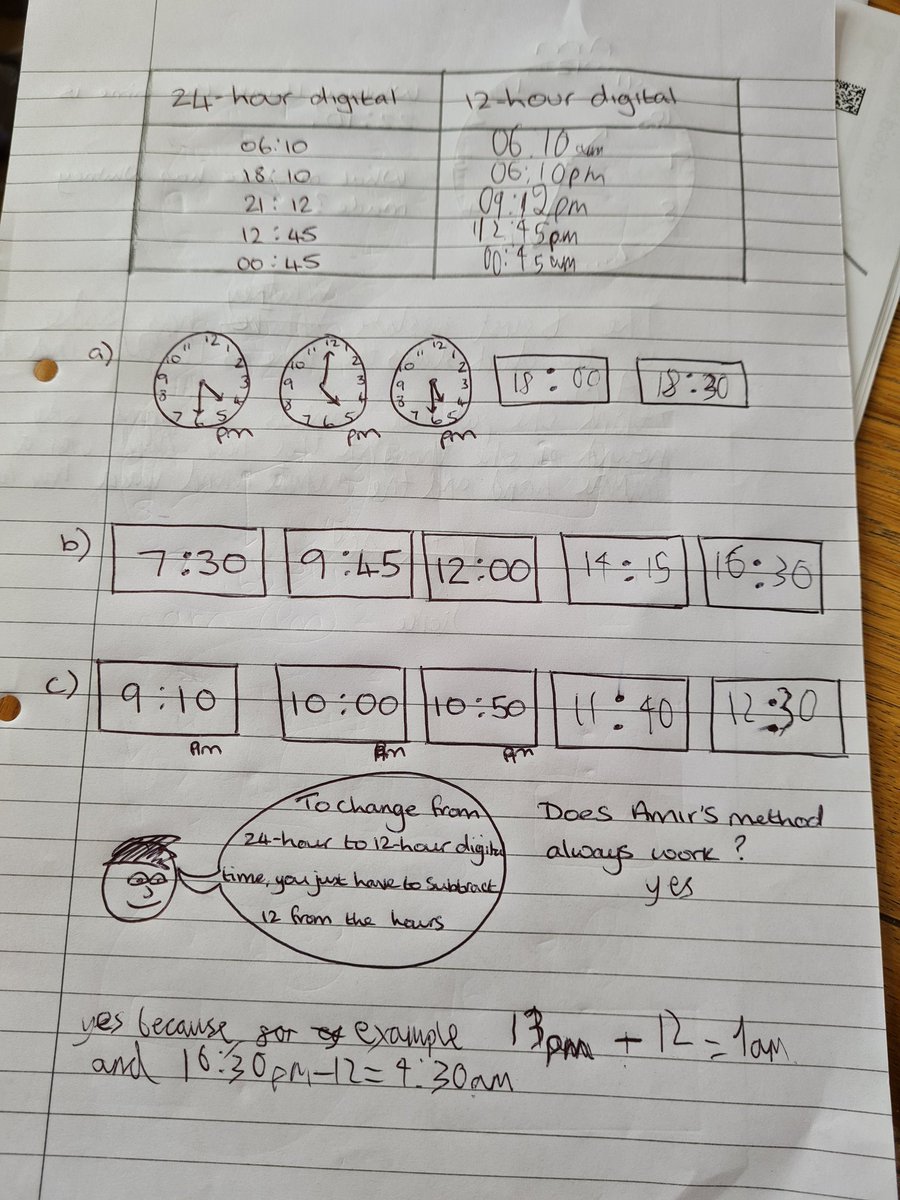 24-hour digital 12-hour digital
06:10 06.10am
18:10 06:10pm
21:12 09:12pm
12:45 12:45pm
00:45 00:45am
a) 12 1 2 3 4 5 6 7 8 9 10 11 pm 12 1 2 3 4 5 6 7 8 9 10 11 pm 12 1 2 3 4 5 6 7 8 9 10 11 pm 18:00 18:30
b) 7:30 9:45 12:00 14:15 16:30
c) 9:10 10:00 10:50 11:40 12:30
Am Am Am
To change from
24-hour to 12-hour digital
time, you just have to subtract
12 from the hours
Does Amir's method
always work?
yes
yes because for example 13pm + 12 = 1am
and 16:30pm-12=4:30am